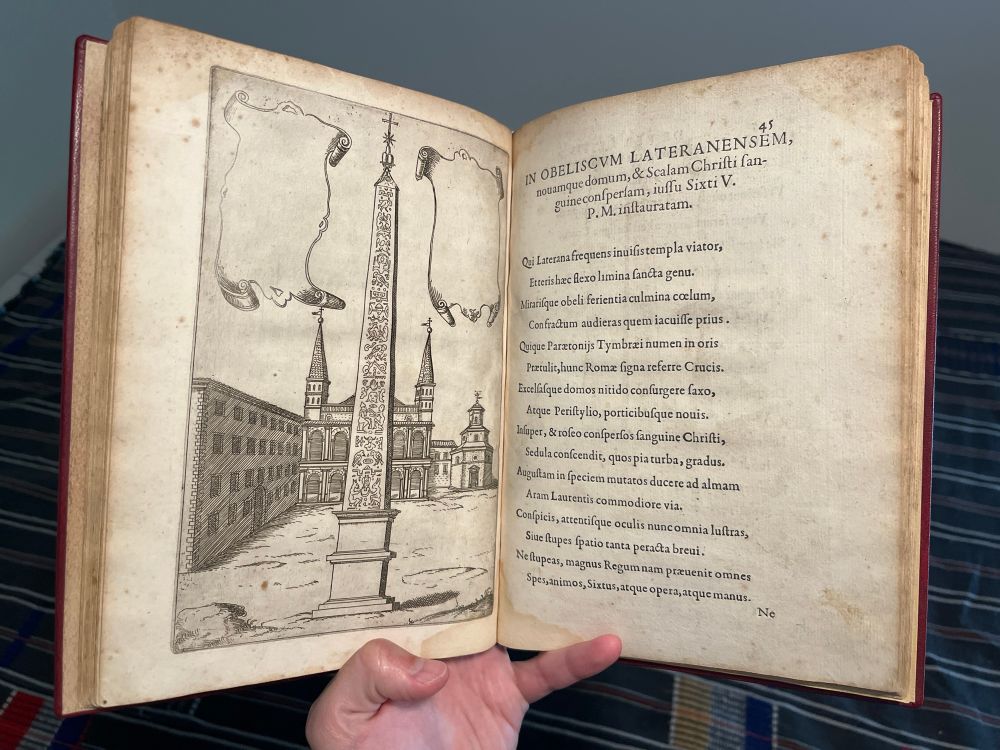 45
IN OBELISCVM LATERANENSEM,
nouamque domum, & Scalam Chriſti ſan-
guine conſperſam, iuſſu Sixti V.
P. M. inſtauratam.
Qui Laterana frequens inuiſis templa viator,
Et teris hæc flexo limina ſancta genu.
Miratiſque obeli ferientia culmina cœlum,
Confractum audieras quem iacuiſſe prius.
Quique Parætonijs Tymbræi numen in oris
Prætulit, hunc Romæ ſigna referre Crucis.
Excelſaſque domos nitido conſurgere ſaxo,
Atque Periſtylio, porticibuſque nouis.
Inſuper, & roſeo conſperſos ſanguine Chriſti,
Sedula conſcendit, quos pia turba, gradus.
Auguſtam in ſpeciem mutatos ducere ad almam
Aram Laurentis commodiore via.
Conſpicis, attentiſque oculis nunc omnia luſtras,
Siue ſtupes ſpatio tanta peracta breui.
Ne ſtupeas, magnus Regum nam præuenit omnes
Spes, animos, Sixtus, atque opera, atque manus.
Ne